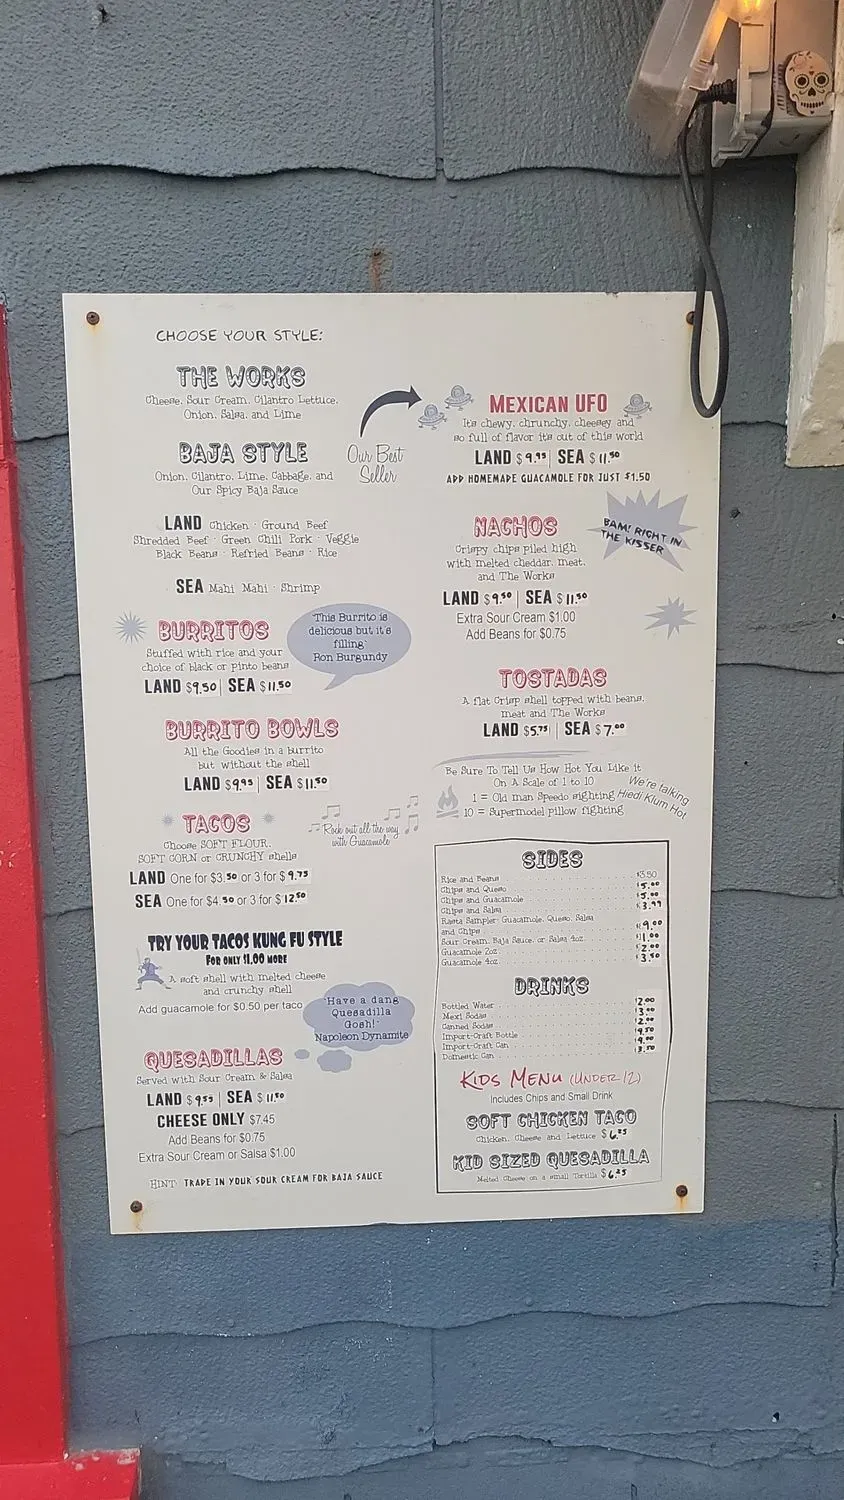 CHOOSE YOUR STYLE:
THE WORKS
Cheese, Sour Cream, Cilantro Lettuce,
Onion, Salsa, and Lime
BAJA STYLE
Onion, Cilantro, Lime, Cabbage, and
Our Spicy Baja Sauce
LAND Chicken · Ground Beef
Shredded Beef · Green Chili Pork · Veggie
Black Beans · Refried Beans · Rice
SEA Mahi Mahi · Shrimp
BURRITOS
Stuffed with rice and your
choice of black or pinto beans
LAND $9.50 | SEA $11.50
"This Burrito is
delicious but it's
filling"
Ron Burgundy
BURRITO BOWLS
All the Goodies in a burrito
but without the shell
LAND $9.95 | SEA $11.50
TACOS
Choose SOFT FLOUR,
SOFT CORN or CRUNCHY shells
LAND One for $3.50 or 3 for $9.75
SEA One for $4.50 or 3 for $12.50
Rock out all the way
with Guacamole
TRY YOUR TACOS KUNG FU STYLE
FOR ONLY $1.00 MORE
A soft shell with melted cheese
and crunchy shell
Add guacamole for $0.50 per taco
"Have a dang
Quesadilla
Gosh!"
Napoleon Dynamite
QUESADILLAS
Served with Sour Cream & Salsa
LAND $9.55 | SEA $11.50
CHEESE ONLY $7.45
Add Beans for $0.75
Extra Sour Cream or Salsa $1.00
HINT: TRADE IN YOUR SOUR CREAM FOR BAJA SAUCE
Our Best
Seller
MEXICAN UFO
Its chewy, chrunchy, cheesey and
so full of flavor its out of this world
LAND $9.95 | SEA $11.50
ADD HOMEMADE GUACAMOLE FOR JUST $1.50
NACHOS
Crispy chips piled high
with melted cheddar, meat,
and The Works
LAND $9.50 | SEA $11.50
Extra Sour Cream $1.00
Add Beans for $0.75
BAM! RIGHT IN
THE KISSER
TOSTADAS
A flat Crisp shell topped with beans,
meat and The Works
LAND $5.75 | SEA $7.00
Be Sure To Tell Us How Hot You Like it
On A Scale of 1 to 10
1 = Old man Speedo sighting
10 = Supermodel pillow fighting
We're talking
Hiedi Klum Hot
SIDES
Rice and Beans $3.50
Chips and Queso $5.00
Chips and Guacamole $5.00
Chips and Salsa $3.99
Rasta Sampler: Guacamole, Queso, Salsa
and Chips $9.00
Sour Cream, Baja Sauce, or Salsa 4oz $1.00
Guacamole 2oz $2.00
Guacamole 4oz $3.50
DRINKS
Bottled Water $2.00
Mexi Sodas $3.00
Canned Sodas $2.00
Import-Craft Bottle $4.50
Import-Craft Can $4.00
Domestic Can $3.50
KIDS MENU (UNDER 12)
Includes Chips and Small Drink
SOFT CHICKEN TACO
Chicken, Cheese and Lettuce $6.25
KID SIZED QUESADILLA
Melted Cheese on a small Tortilla $6.25